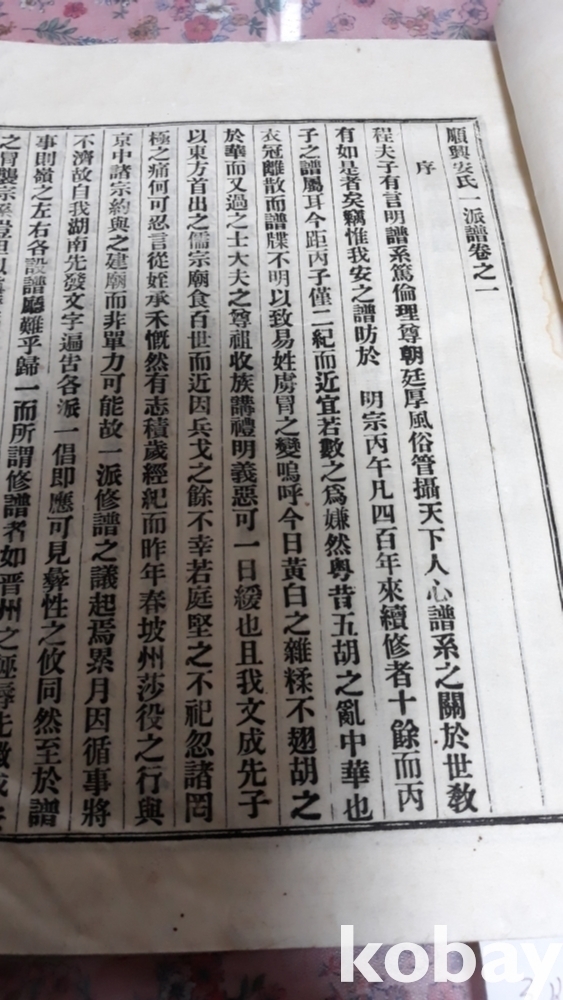 順興安氏一派譜卷之一
序
程夫子有言明譜系篤倫理尊朝廷厚風俗管攝天下人心譜系之關於世敎
有如是者矣竊惟我安之譜昉於 明宗丙午凡四百年來續修者十餘而丙
子之譜屬耳今距丙子僅二紀而近宜若數之爲嫌然粤昔五胡之亂中華也
衣冠離散而譜牒不明以致易姓虜冒之變嗚呼今日黃白之雜糅不翅胡之
於華而又過之士大夫之尊祖收族講禮明義惡可一日緩也且我文成先子
以東方首出之儒宗廟食百世而近因兵戈之餘不幸若庭堅之不祀忽諸罔
極之痛何可忍言從姪承禾慨然有志積歲經紀而昨年春坡州莎役之行與
京中諸宗約與之建廟而非單力可能故一派修譜之議起焉累月因循事將
不濟故自我湖南先發文字遍告各派一倡卽應可見彝性之攸同然至於譜
事則嶺之左右各設譜廳難乎歸一而所謂修譜者如晋州之誣辱先徵
之冒襲宗
kobay